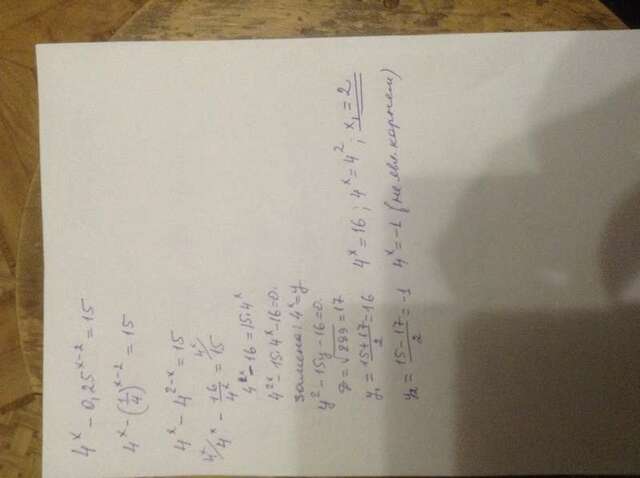 4^x - 0,25^{x-2} = 15
4^x - (1/4)^{x-2} = 15
4^x - 4^{2-x} = 15
4^x/ 4^x - 16/4^x = 4^x/ 15
4^{2x} - 16 = 15·4^x
4^{2x} - 15·4^x - 16 = 0.
Замена: 4^x = y
y^2 - 15y - 16 = 0.
D = √289 = 17
y₁ = (15+17)/2 = 16 4^x = 16 ; 4^x = 4^2 ; x₁ = 2
y₂ = (15-17)/2 = -1 4^x = -1 (не явл. корнем)